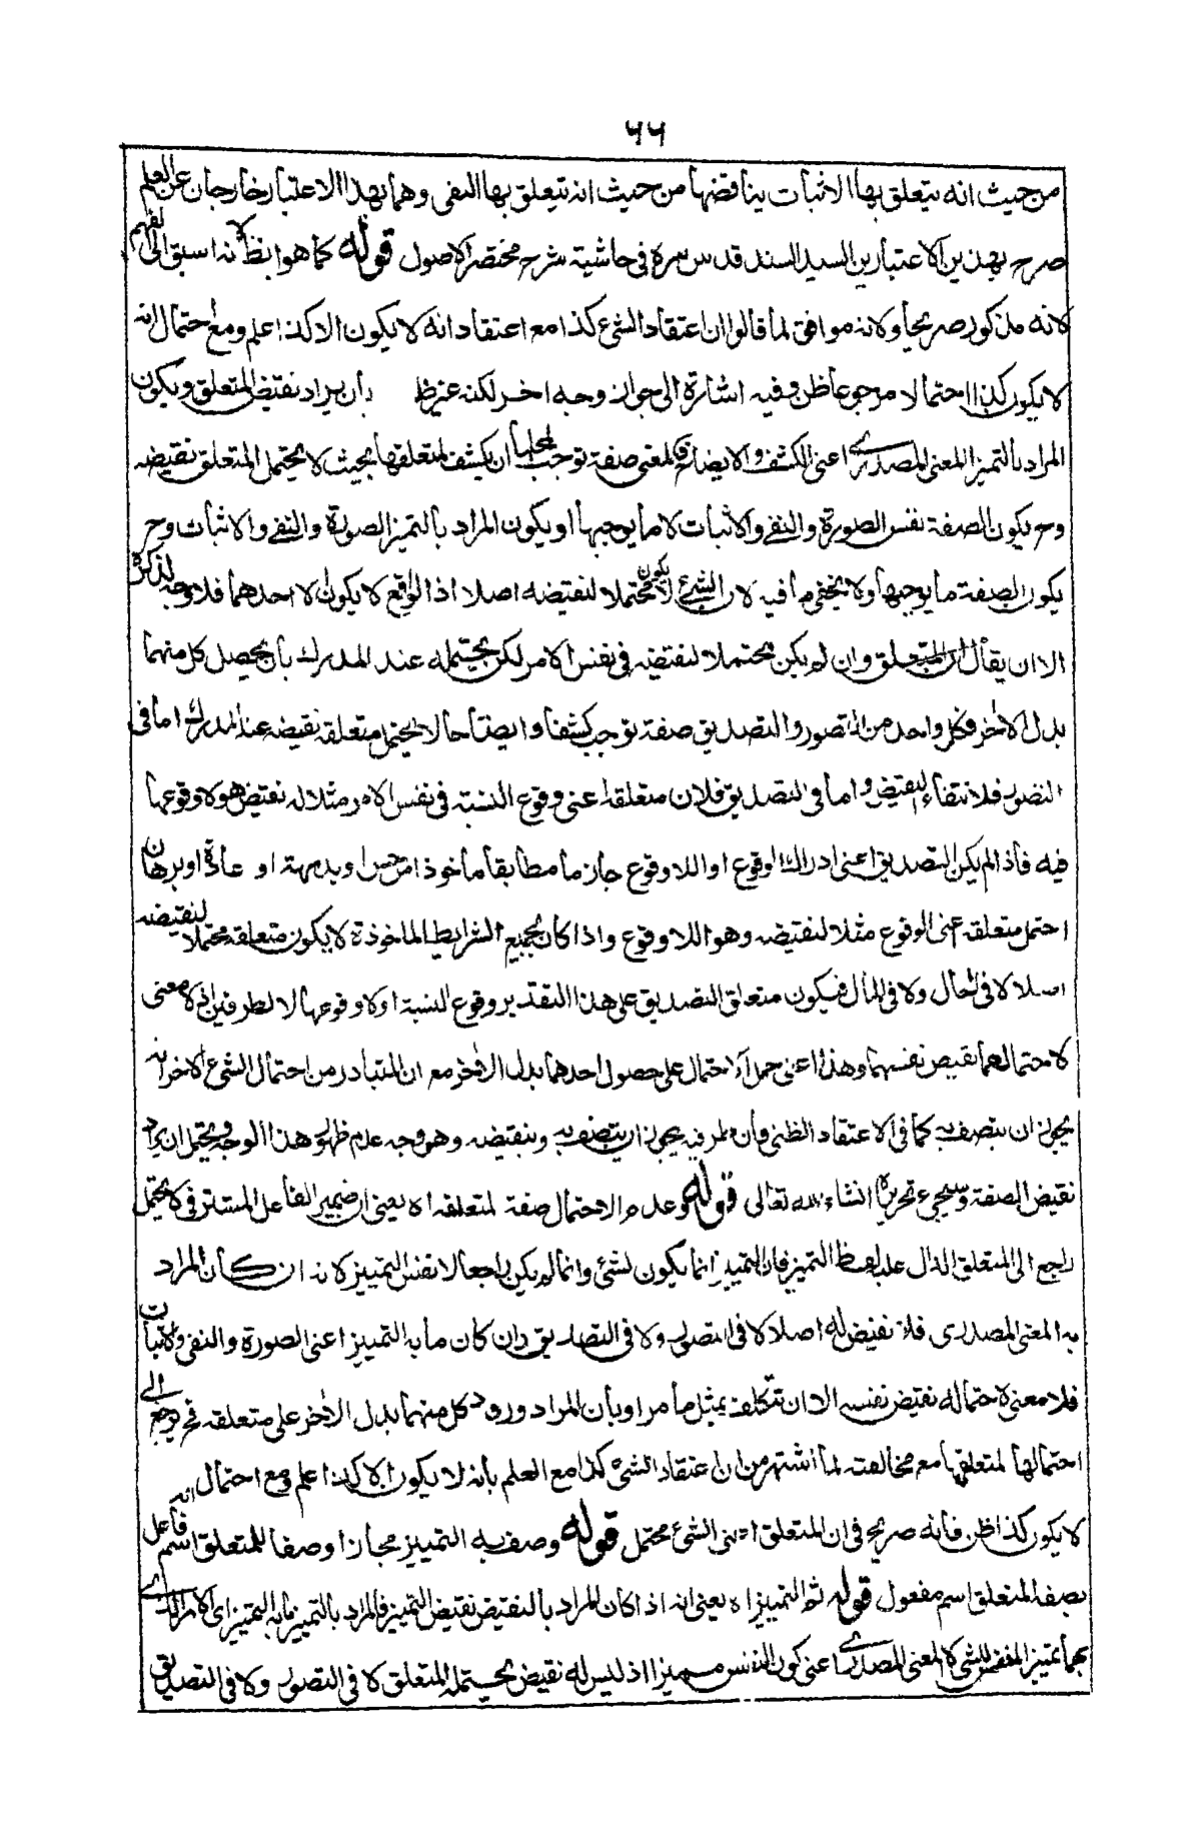 ٦٦
من حيث انه يتعلق بها الاثبات يناقضها من حيث انه يتعلق بها النفى وهما بهذا الاعتبار خارجان عن العلم
صرح بهذين الاعتبارين السيد السند قدس سره فى حاشية شرح مختصر الاصول قوله كما هو الظ لانه اسبق الى الفهم
لانه مذكور صريحا ولانه موافق لما قالوا ان اعتقاد الشئ كذا مع اعتقاد انه لا يكون الا كذا علم ومع احتمال انه
لا يكون كذا احتمالا مرجوعا ظن وفيه اشارة الى جواز وجه اخر لكنه غير ظ بأن يراد نقيض المتعلق ويكون
المراد بالتميز المعنى المصدرى اعنى الكشف والايضاح فالمعنى صفة توجب لمحلها ان يكشف لمتعلقها بحيث لا يحتمل المتعلق نقيضه
وح يكون الصفة نفس الصورة والنفى والاثبات لا ما يوجبها او يكون المراد بالتميز الصورة والنفى والاثبات وح
يكون الصفة ما يوجبها ولا يخفى ما فيه لان الشئ لا يكون محتملا لنقيضه اصلا اذ الواقع لا يكون الا احدهما فلا وجه لذكره
الا ان يقال ان المتعلق وان لم يكن محتملا لنقيضه فى نفس الامر لكن يحتمله عند المدرك بأن يحصل كل منهما
بدل الاخر وكل واحد من التصور والتصديق صفة توجب كشفا وايضاحا لا يحتمل متعلقه نقيضه عند المدرك اما فى
التصور فلانتفاء النقيض واما فى التصديق فلان متعلقه اعنى وقوع النسبة فى نفس الامر مثلا له نقيض هو لا وقوعها
فيه فاذا لم يكن التصديق اعنى ادراك الوقوع او اللا وقوع جازما مطابقا مأخوذا من حس او بديهة او عادة او برهان
احتمل متعلقه اعنى الوقوع مثلا لنقيضه وهو اللا وقوع واذا كان بجميع الشرايط المأخوذة لا يكون متعلقه محتملا لنقيضه
اصلا لا فى الحال ولا فى المأل فيكون متعلق التصديق على هذا التقدير وقوع النسبة او لا وقوعها لا الطرفين اذ لا معنى
لاحتمالهما نقيض نفسهما وهذا اعنى حمل الاحتمال على حصول احدهما بدل الاخر مع ان المتبادر من احتمال الشئ لاخر انه
يجوز ان يتصف به كما فى الاعتقاد الظنى فان طرفيه يجوز ان يتصف به وبنقيضه وهو وجه عدم ظهور هذا الوجه ويحتمل ان يراد
نقيض الصفة وسيجئ تحريره انشاء الله تعالى قوله وعدم الاحتمال صفة لمتعلقه اه يعنى ان ضمير الفاعل المستتر فى لا يحتمل
راجع الى المتعلق الدال عليه لفظ التميز فان التميز انما يكون لشئ وانما لم يكن راجعا لا نفس التمييز لانه ان كان المراد
به المعنى المصدرى فلا نقيض له اصلا لا فى التصور ولا فى التصديق وان كان ما به التمييز اعنى الصورة والنفى والاثبات
فلا معنى لاحتماله نقيض نفسه الا ان تتكلف بمثل ما مر او بأن المراد ورود كل منهما بدل الاخر على متعلقه فيرجع الى
احتمالها لمتعلقها مع مخالفته لما اشتهر من ان اعتقاد الشئ كذا مع العلم بأنه لا يكون الا كذا علم ومع احتمال انه
لا يكون كذا ظن فانه صريح فى ان المتعلق اعنى الشئ محتمل قوله وصف به التمييز مجازا وصفا للمتعلق اسم فاعل
بصفة المتعلق اسم مفعول قوله ثم التمييز اه يعنى انه اذا كان المراد بالنقيض نقيض التميز فالمراد بالتمييز ما به التمييز اى الامر الذى
بها تميز النفس الشئ لا المعنى المصدرى اعنى كون النفس مميزا اذ ليس له نقيض يحتمله المتعلق لا فى التصور ولا فى التصديق